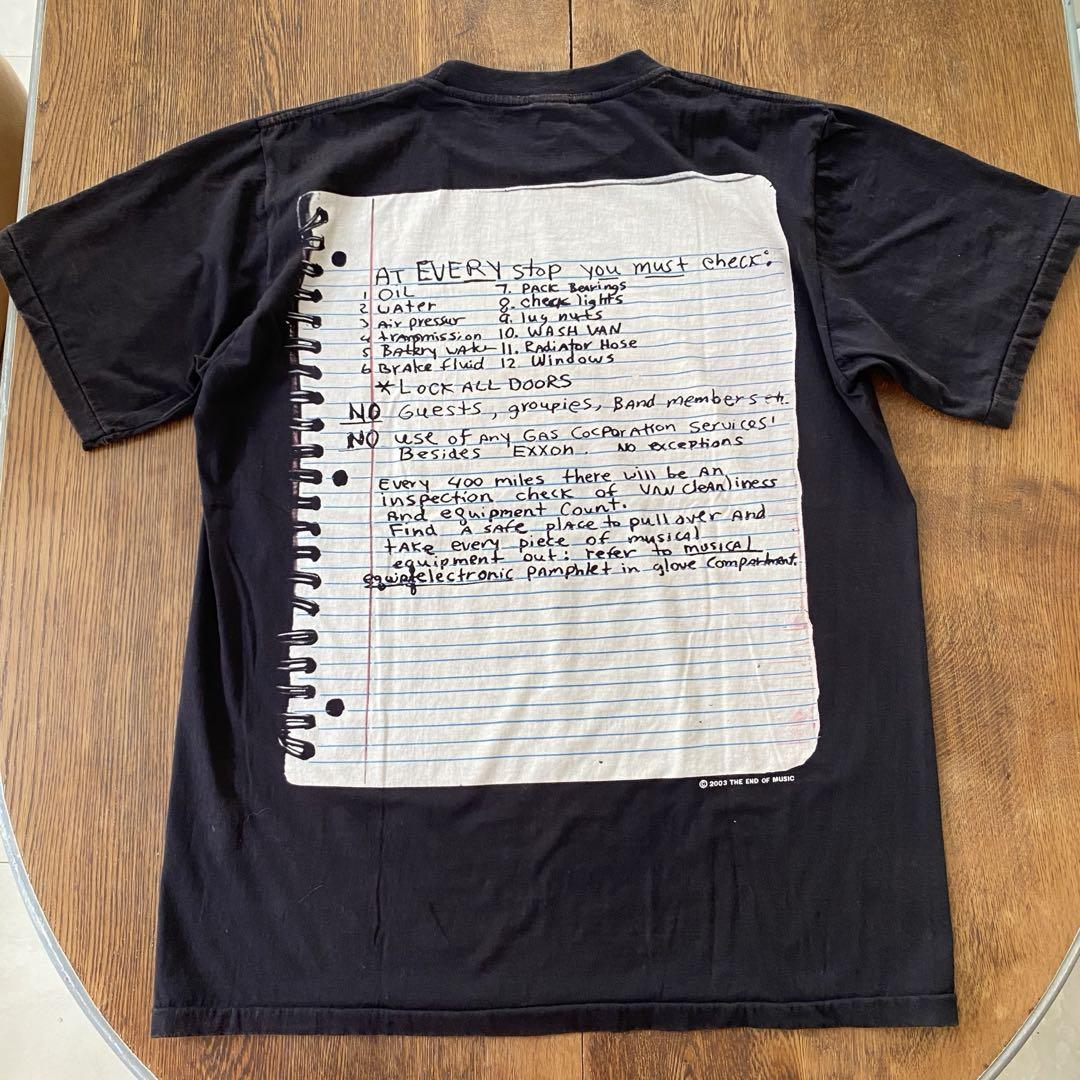 AT EVERY stop you must check:
1 OIL 7. PACK Bearings
2 WAter 8. check lights
3 Air pressur 9. lug nuts
4 transmission 10. WASH VAN
5 BAttery wAtr 11. RAdiAtor Hose
6 BrAke fluid 12. Windows
* LOCK ALL DOORS
NO Guests, groupies, BAnd members etc.
NO use of Any GAS CorporAtion Services'
Besides EXXON. NO exceptions
Every 400 miles there will be An
inspection check of VAN cleAnliness
And equipment Count.
Find A sAfe plAce to pull over And
tAke every piece of musicAl
equipment out: refer to musicAl
electronic pAmphlet in glove compArtment.
© 2003 THE END OF MUSIC